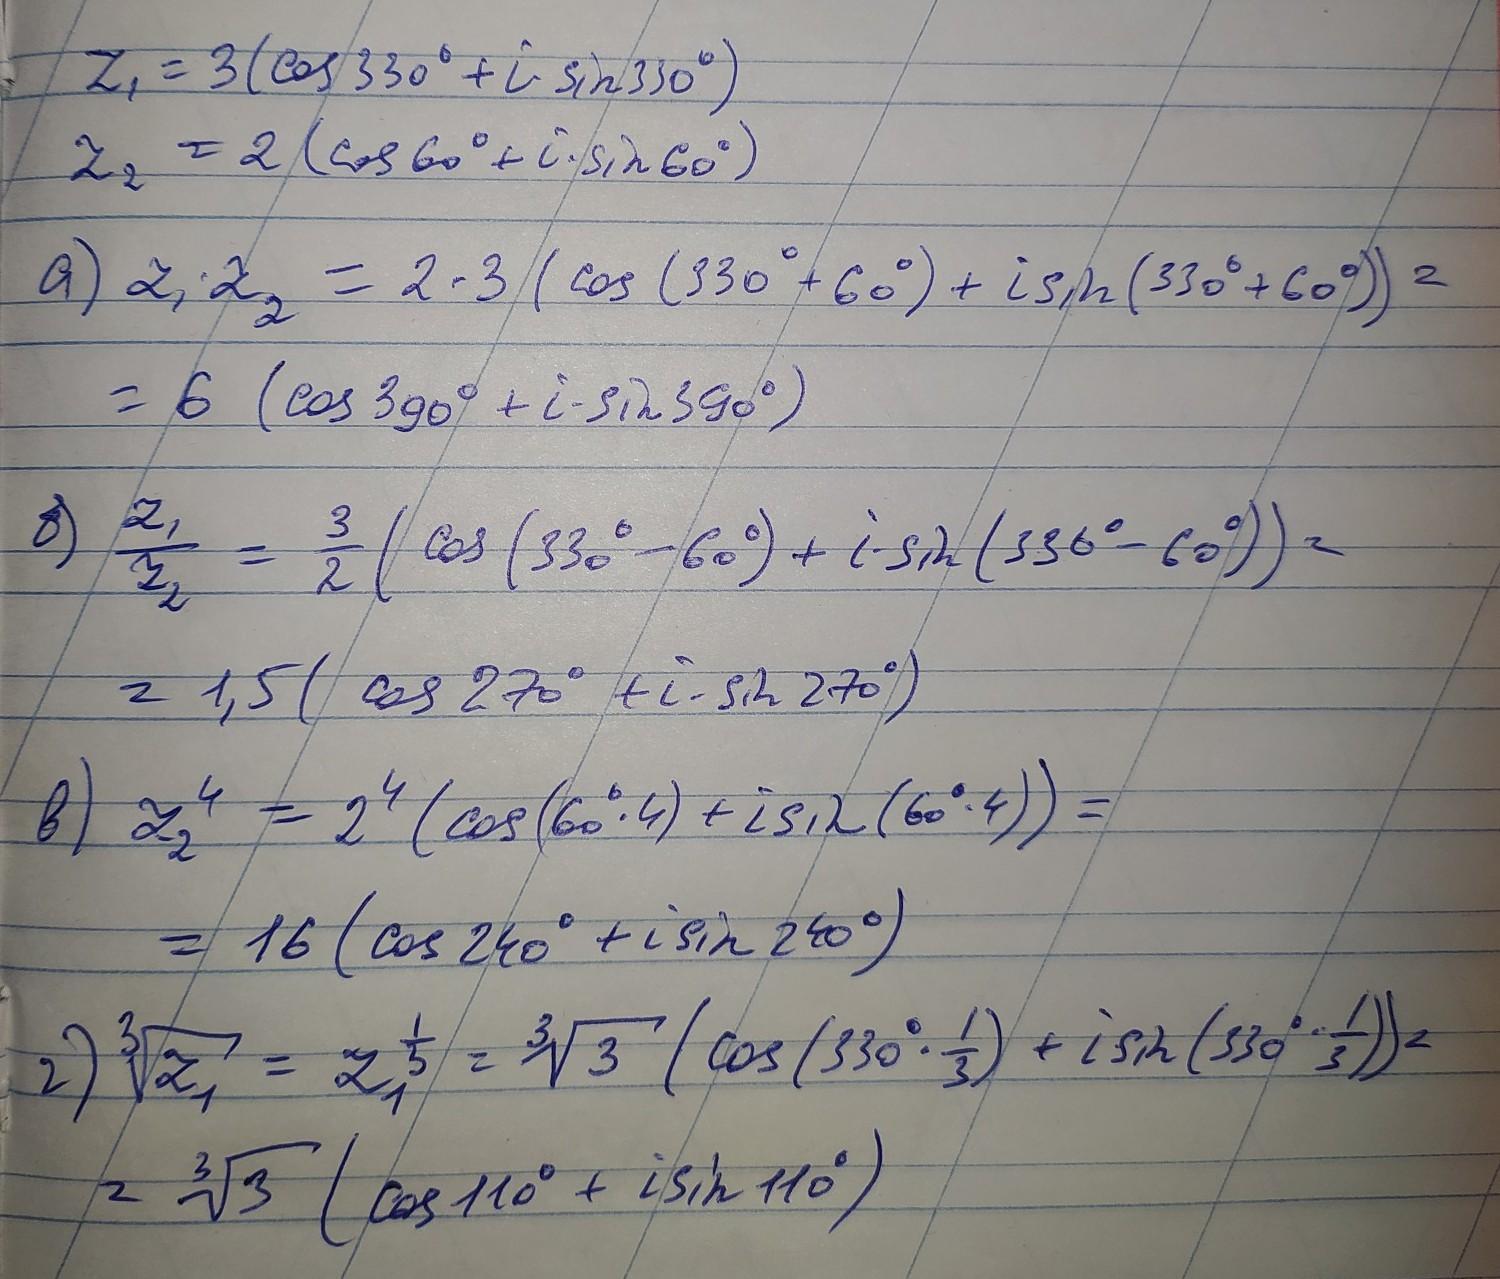 z₁ = 3(cos330° + i·sin330°)
z₂ = 2(cos60° + i·sin60°)
а) z₁·z₂ = 2·3(cos(330° + 60°) + isin(330° + 60°)) =
= 6 (cos390° + i·sin390°)
б) z₁/z₂ = 3/2 (cos(330° − 60°) + i·sin(330° − 60°)) =
= 1,5( cos270° + i·sin270°)
в) z₂⁴ = 2⁴(cos(60°·4) + isin(60°·4)) =
= 16(cos240° + isin240°)
г) ∛z₁ = z₁^(1/3) = ∛3 (cos(330°·1/3) + isin(330°·1/3)) =
= ∛3 (cos110° + isin110°)